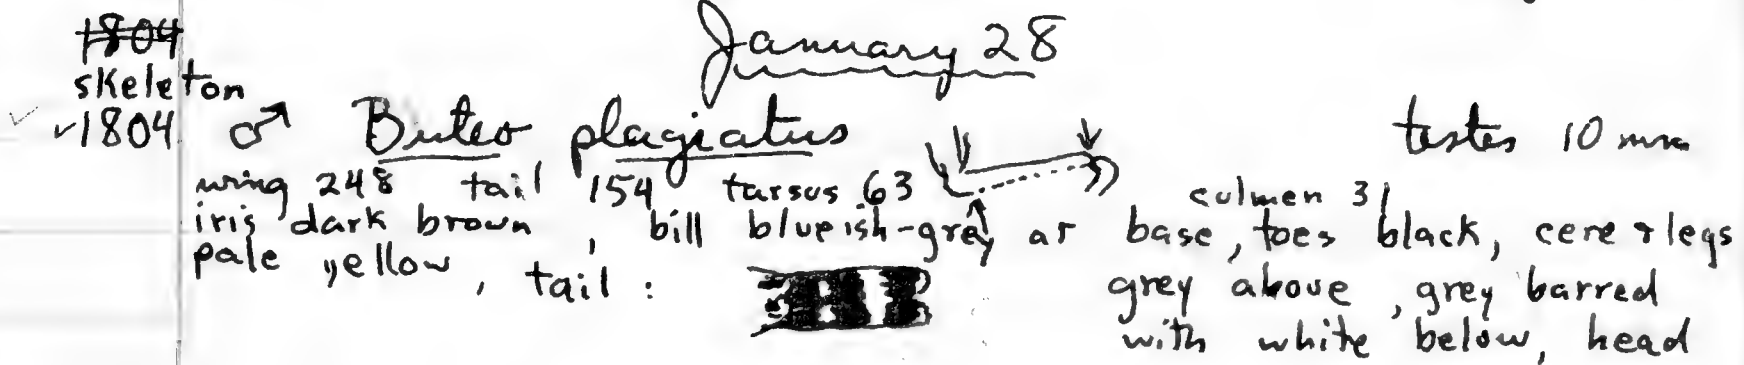 1804
January 28
skeleton
✓1804 ♂ Buteo plagiatus testes 10 mm
wing 248 tail 154 tarsus 63 culmen 31
iris dark brown, bill blueish-grey at base, toes black, cere & legs
pale yellow, tail: grey above, grey barred
with white below, head